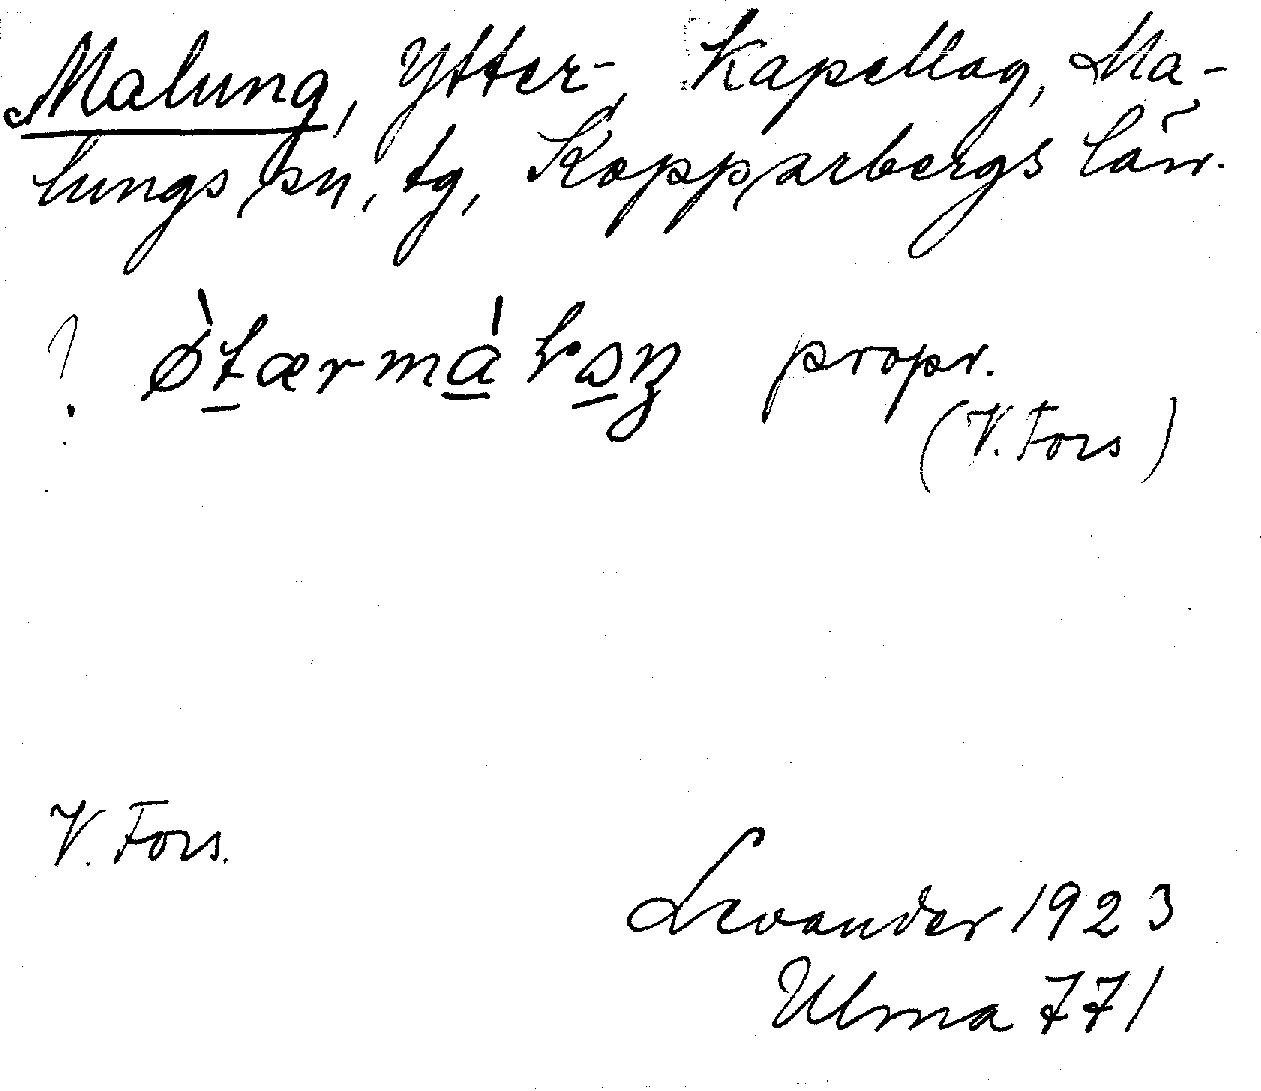 Malung, Ytter-, Kapellag, Ma-
lungs sn, tg, Kopparbergs län.
? ø̀t̲ærmá̲kə̲ŋ propr.
(V. Fors)
V. Fors.
Levander 1923
Ulma 771